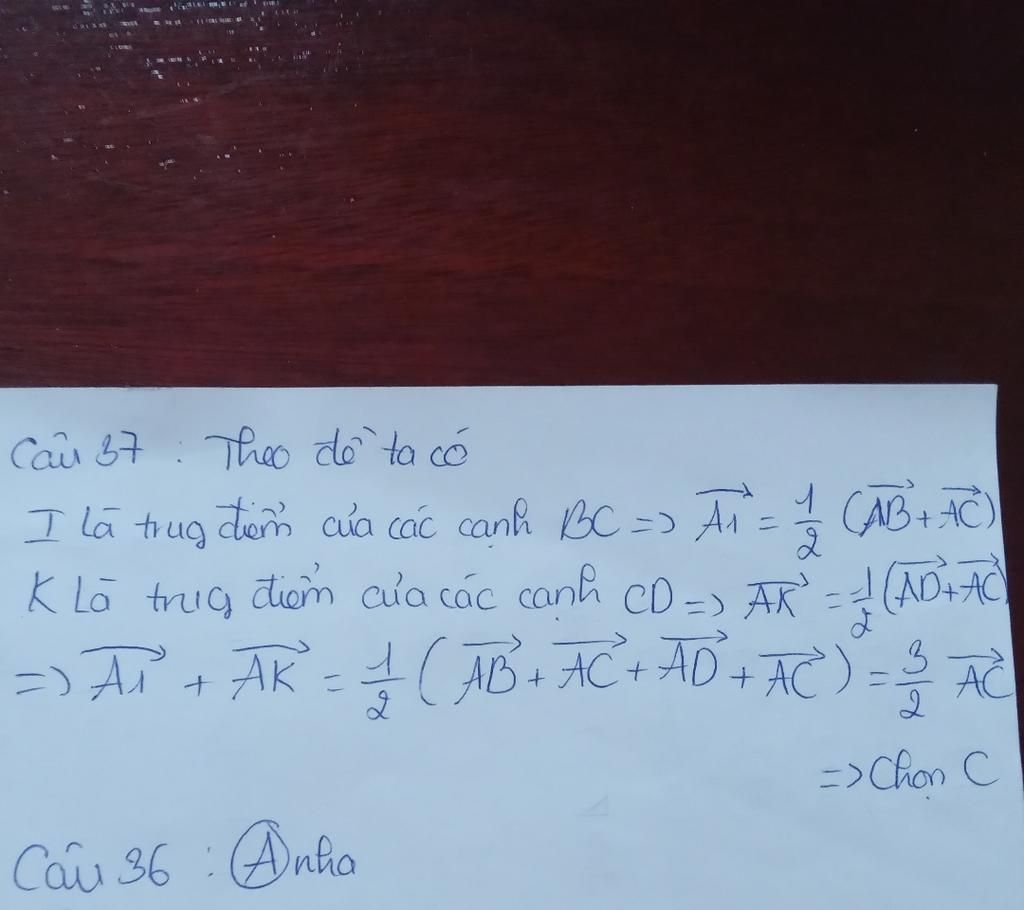 Câu 37 : Theo đề ta có
I Là trug điểm của các cạnh BC => AI = 1/2 (AB + AC)
K Là trug điểm của các cạnh CD => AK = 1/2 (AD + AC)
=> AI + AK = 1/2 (AB + AC + AD + AC) = 3/2 AC
=> Chọn C
Câu 36 : A nha